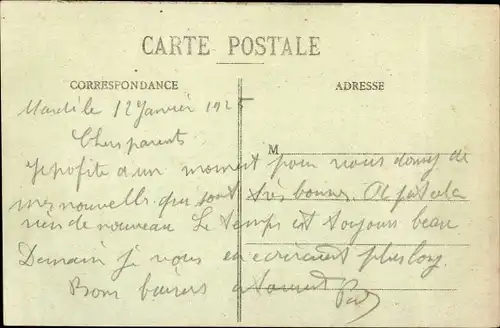 CARTE POSTALE
CORRESPONDANCE
ADRESSE
Mardi le 12 Janvier 1925
Chers parents
M
profite d'un moment pour vous donner de
mes nouvelles qui sont très bonnes. A part cela
rien de nouveau Le temps est toujours beau
Demain je vous en écrirai plus long
Bons baisers a